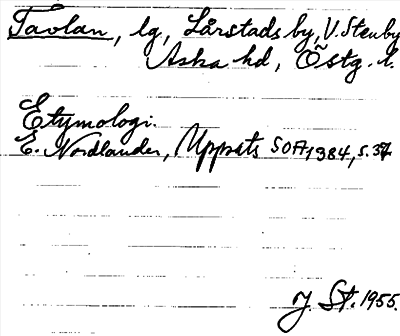 Tavlan, lg, Lårstads by, V. Stenby
Aska hd, Östg. l.
Etymologi.
E. Nordlander, Uppsats SOA 1384, s. 37
J. St. 1955.